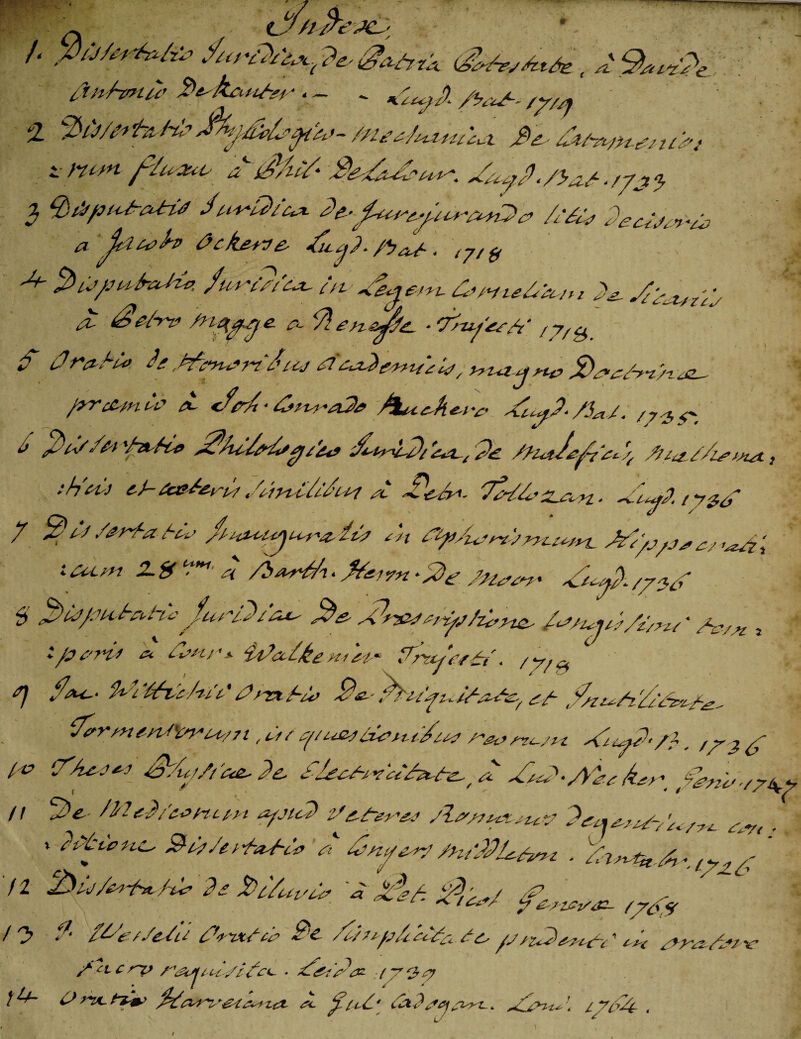 Index,
1. Dissertatio Juridica, De Patria Potestate, a Davide
Antonio De Kanter. - - Lugd. Bat. 1719
2 Dissertatio Physiologico-mechanica De Catamenio:
:rum fluxu a Phil. De la Cour. Lugd. Bat. 1733
3 Disputatio Juridica De Jurejurando litis Decisorio
a Jacobo Ockerse Lugd. Bat. 1718
4 Disputatio. Juridica in Legem Corneliam De Sicariis
a Petro Magge a Renesse. Trajecti 1718.
5 Oratio de Honoribus Academicis, magno Doctrinae
praemio a Joh. Conrado Ruckero Lugd. Bat. 1735.
6 Dissertatio Philologico Juridica, De Maleficis, Mathema:
:ticis et caeteris similibus a Petr. Tollozan. Lugd. 1736
7 Dissertatio Inauguralis in Aphorismum Hippocrati:
:cum 28um. a Barth. Herm. De Moor Lugd. 1736
8 Disputatio Juridica De Praescriptione longissimi tem:
:poris a Conr. Walkenier Trajecti. 1718
9 Jac. Wittichii Oratio De Iniquitate, et Inutilitate
Tormentorum, in quaestionibus reorum Lugd. B. 1736
10 Theses Physicae De Electricitate, a Lud. Necker. Genev. 1747
11 De Medicorum apud Veteres Romanos Degentium con:
:ditione Dissertatio a Conyers Middleton. Canta br. 1726
12 Dissertatio De Diluvio a Pet. Picot Genevae 1768
13 P. Wesselii Oratio De simplicitate prudenti in oratore
sacro requisita. Leidae 1739
14 Oratio Harveiana a Gul. Cadogan. Lond. 1764.